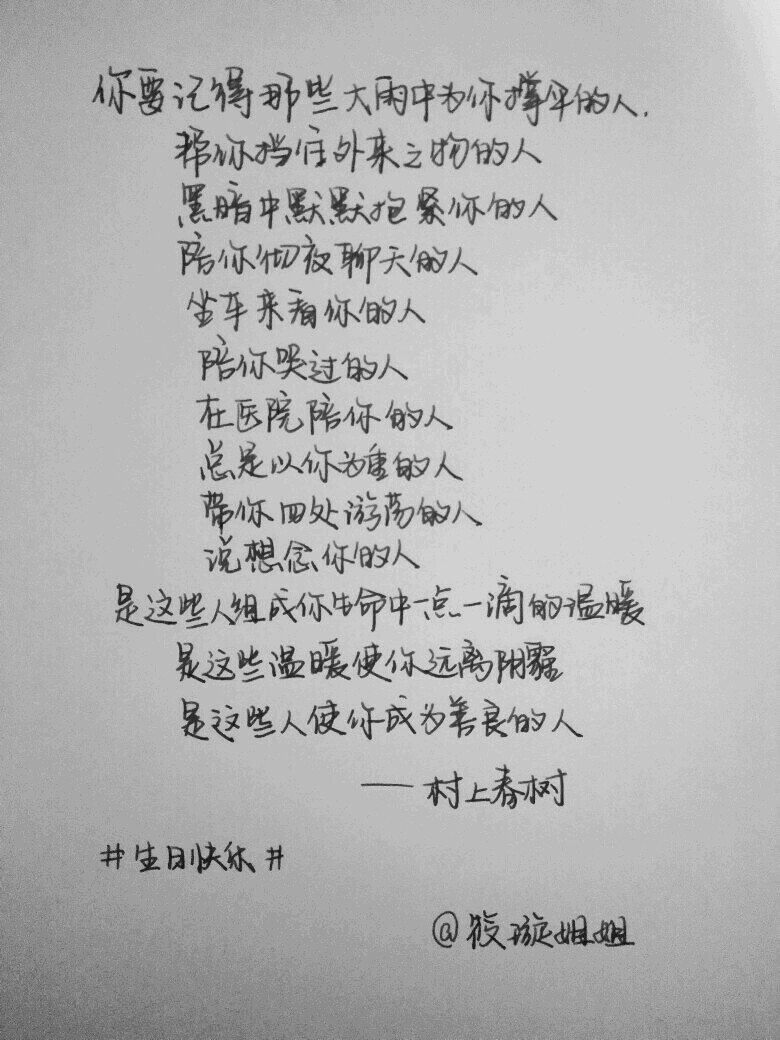 你要记得那些大雨中为你撑伞的人.
帮你挡住外来之物的人
黑暗中默默抱紧你的人
陪你彻夜聊天的人
坐车来看你的人
陪你哭过的人
在医院陪你的人
总是以你为重的人
带你四处游荡的人
说想念你的人
是这些人组成你生命中一点一滴的温暖
是这些温暖使你远离阴霾
是这些人使你成为善良的人
——村上春树
#生日快乐#
@筱璇姐姐